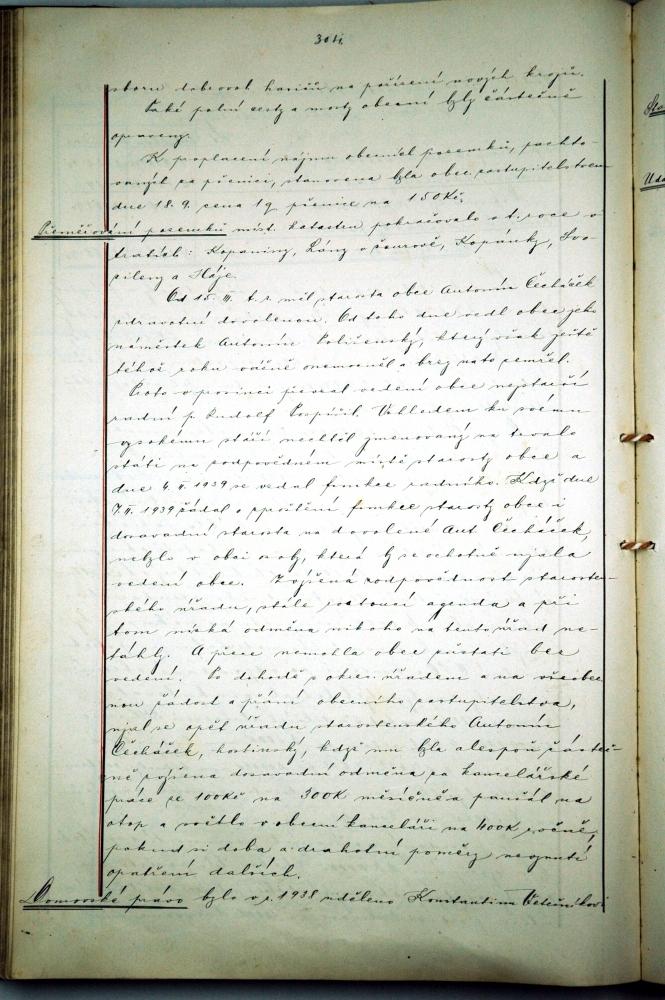 304.
sboru dobrovol. hasičů na pořízení nových krojů.
Také polní cesty a mosty obecní byly částečně
opraveny.
K proplacení nájmu obecních pozemků, pachto-
vaných za pšenici, stanovena byla obec. zastupitelstvem
dne 18. 9. cena 1 q pšenice na 150 Kč.
Přeměřování pozemků míst. katastru pokračovalo v t. roce v
tratích: Kopaniny, Lány, Kopánky,
a Háje.
Od 15. III. t. r. měl starosta obce Antonín Čecháček
zdravotní dovolenou. Od toho dne vedl obec jeho
náměstek Antonín Poličenský, který však ještě
téhož roku vážně onemocněl a brzy nato zemřel.
Proto v prosinci převzal vedení obce nejstarší
radní p. Rudolf Pospíšil. Vzhledem ku svému
vysokému stáří nechtěl jmenovaný na trvalo
státi na zodpovědném místě starosty obce a
dne 4. II. 1939 se vzdal funkce radního. Když dne
7. II. 1939 žádal o zproštění funkce starosty obce i
dosavadní starosta na dovolené Ant. Čecháček,
nebylo v obci osoby, která by se ochotně ujala
vedení obce. Zvýšená zodpovědnost starosten-
ského úřadu, stále rostoucí agenda a při
tom nízká odměna nikoho na tento úřad ne-
táhly. A přece nemohla obec zůstati bez
vedení. Po dohodě s okres. úřadem a na všeobec
nou žádost a přání obecního zastupitelstva,
ujal se opět úřadu starostenského Antonín
Čecháček, hostinský, když mu byla alespoň částeč-
ně zvýšena dosavadní odměna za kancelářské
práce ze 100 Kč na 300 K měsíčně a paušál na
otop a světlo v obecní kanceláři na 400 K ročně,
pokud si doba a drahotní poměry nevynutí
opatření dalších.
Domovské právo bylo v r. 1938 uděleno Konstantinu Večeníkovi